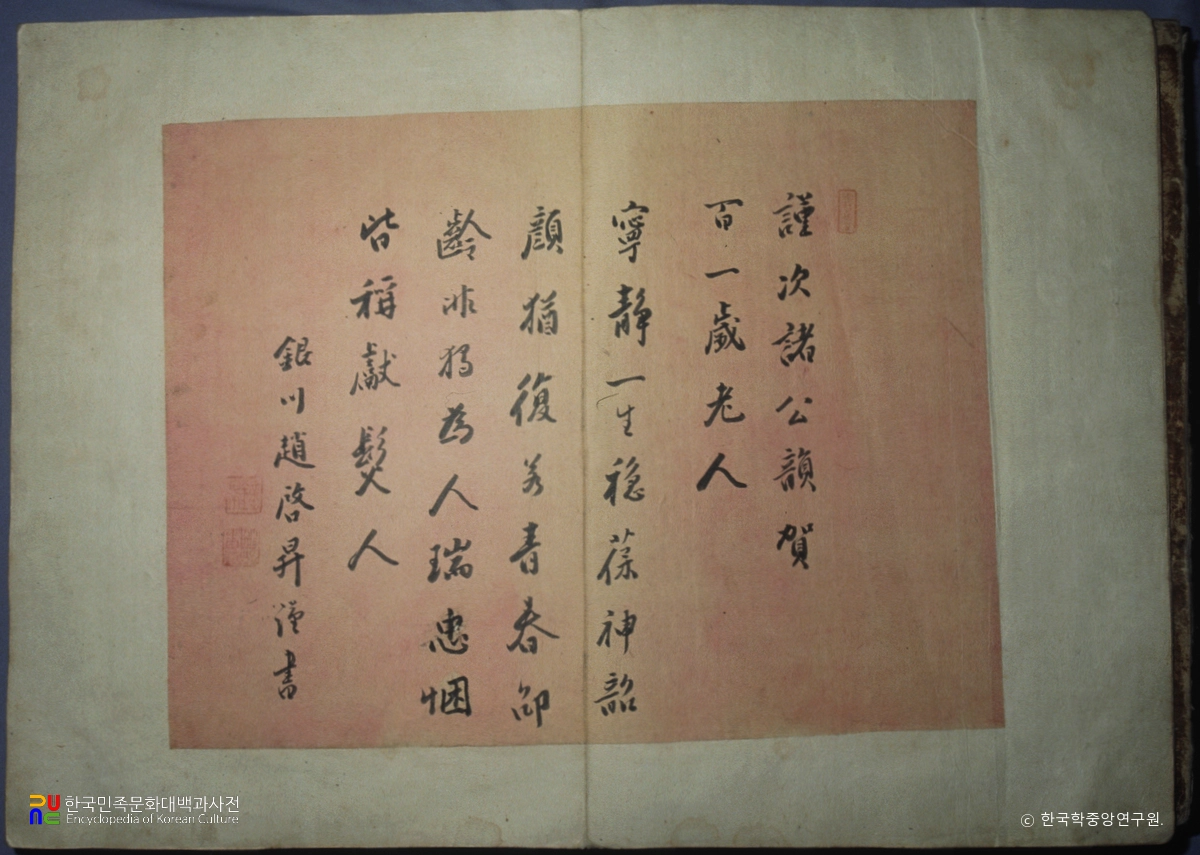 謹次諸公韻賀
百一歲老人
寧靜一生穩葆神韶
顏猶復若青春卲
齡非獨為人瑞悳悃
皆稱獻髮人
銀川趙啓昇謹書
한국민족문화대백과사전
Encyclopedia of Korean Culture
© 한국학중앙연구원.